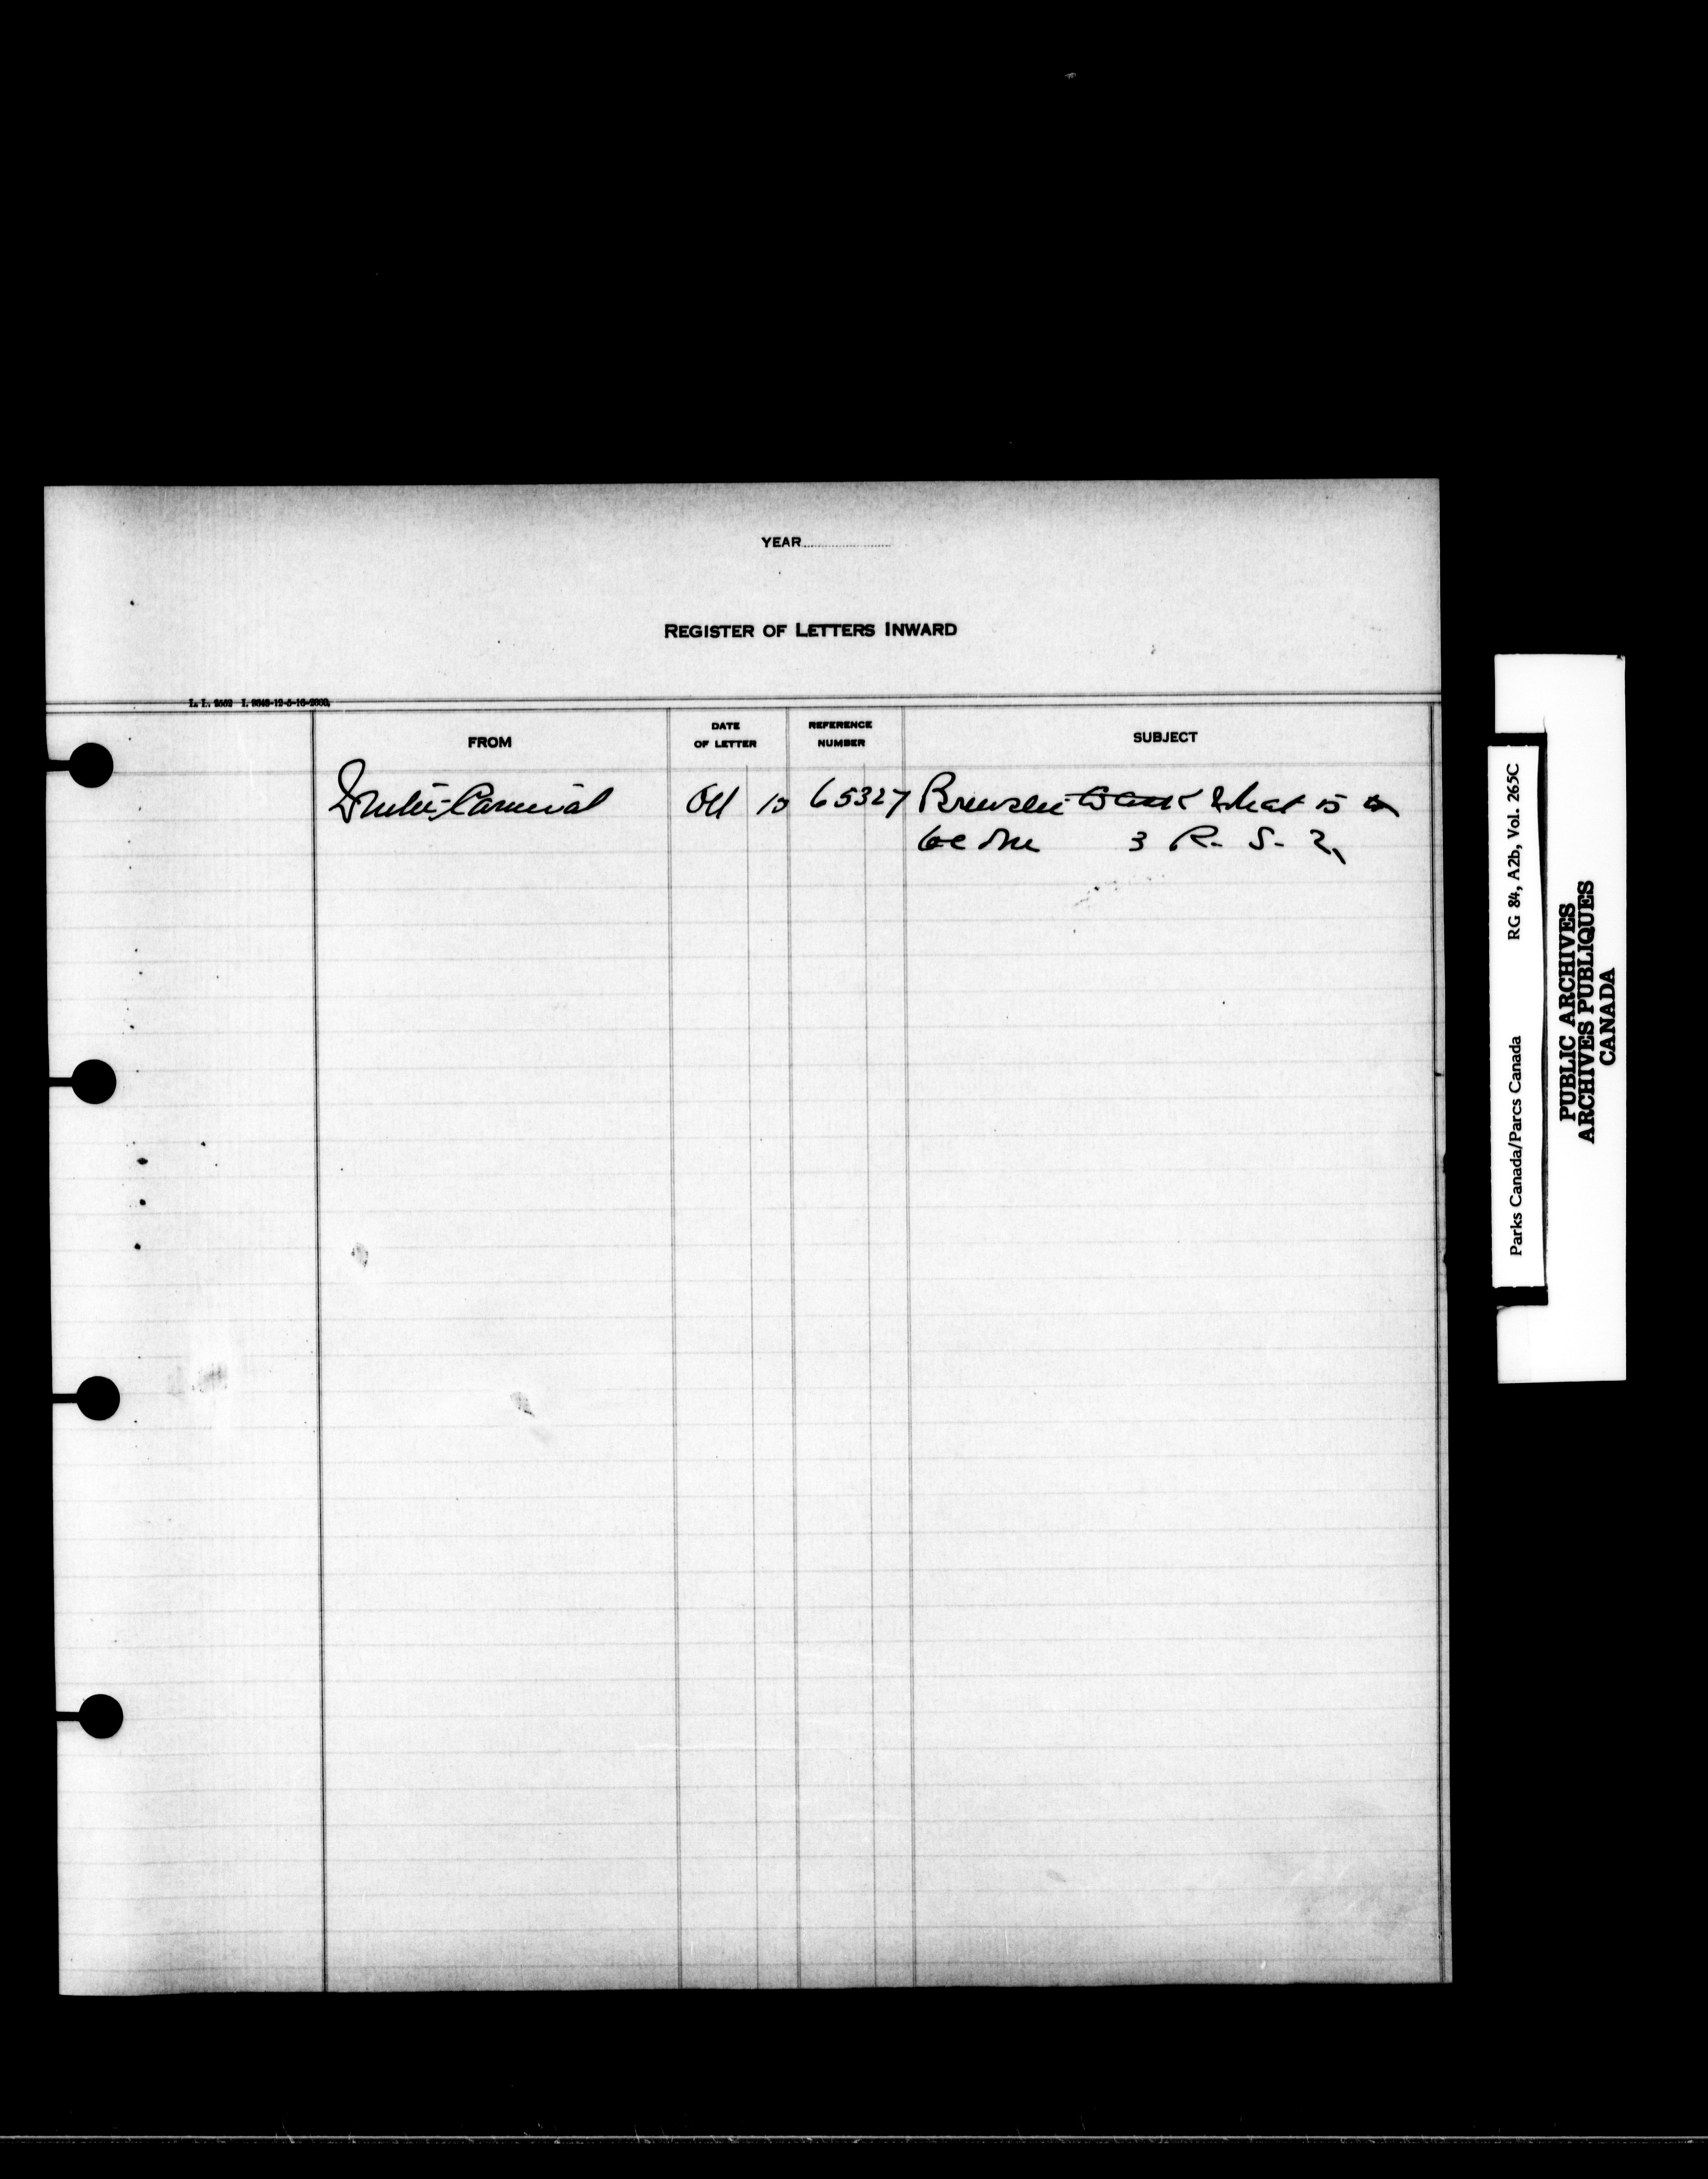 YEAR
REGISTER OF LETTERS INWARD
L. L. 9552 I. 9648-12-5-16-2000.
FROM
DATE
OF LETTER
REFERENCE
NUMBER
SUBJECT
Winter Carnival Oct 10 65327 Brewster what is to
be done 3 R. S. 2,
Parks Canada/Parcs Canada RG 84, A2b, Vol. 265C
PUBLIC ARCHIVES
ARCHIVES PUBLIQUES
CANADA